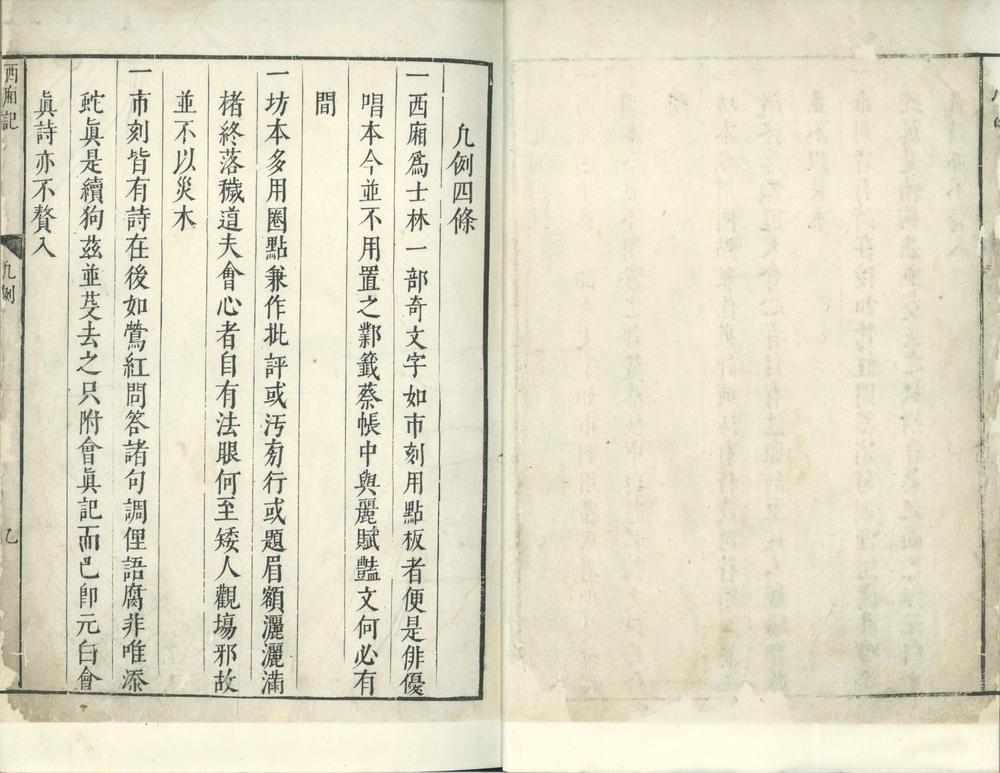 凡例四條
一西廂爲士林一部奇文字如市刻用點板者便是俳優
唱本今並不用置之鄴籤蔡帳中與麗賦豔文何必有
間
一坊本多用圈點兼作批評或汚旁行或題眉額灑灑滿
楮終落穢道夫會心者自有法眼何至矮人觀場邪故
並不以災木
一市刻皆有詩在後如鶯紅問答諸句調俚語腐非唯添
蛇眞是續狗茲並芟去之只附會眞記而已卽元白會
眞詩亦不贅入
西廂記
凡例
乙